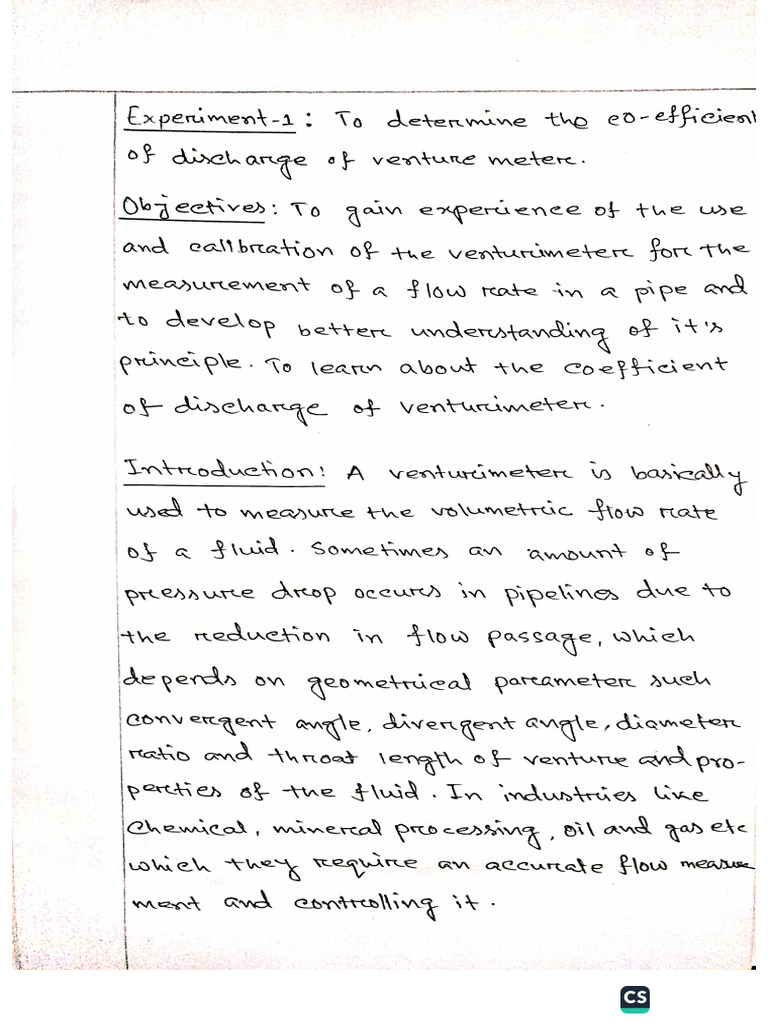 Experiment-1: To determine the co-efficient
of discharge of venture meter.
Objectives: To gain experience of the use
and calibration of the venturimeter for the
measurement of a flow rate in a pipe and
to develop better understanding of it's
principle. To learn about the coefficient
of discharge of venturimeter.
Introduction: A venturimeter is basically
used to measure the volumetric flow rate
of a fluid. Sometimes an amount of
pressure drop occurs in pipelines due to
the reduction in flow passage, which
depends on geometrical parameter such
convergent angle, divergent angle, diameter
ratio and throat length of venture and pro-
perties of the fluid. In industries like
Chemical, mineral processing, oil and gas etc
which they require an accurate flow measure
ment and controlling it.
CS